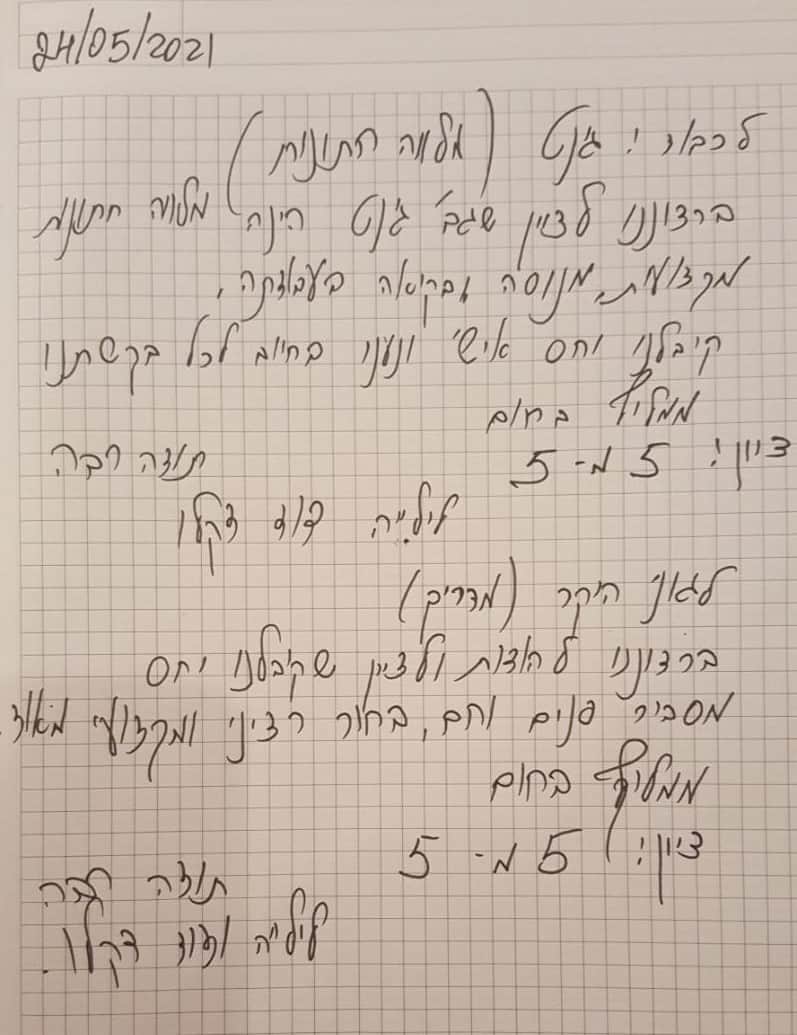 24/05/2021
לכבוד: ג'נט (מלווה חתונות)
ברצוננו לציין שגב' ג'נט הינה מלווה חתונות
מקצועית, מנוסה ובקיאה בעבודתה,
קיבלנו יחס אישי ונענו בחיוב לכל בקשתנו
ממליץ בחום
ציון: 5 מ- 5 תודה רבה
לילייה דוד דקלו
היקר (מדריך)
ברצוננו להודות ולציין שקיבלנו יחס
מסביר פנים וחם, בחור רציני ומקצועי מאוד.
ממליץ בחום
ציון: 5 מ- 5
תודה רבה
לילייה ודוד דקלו.